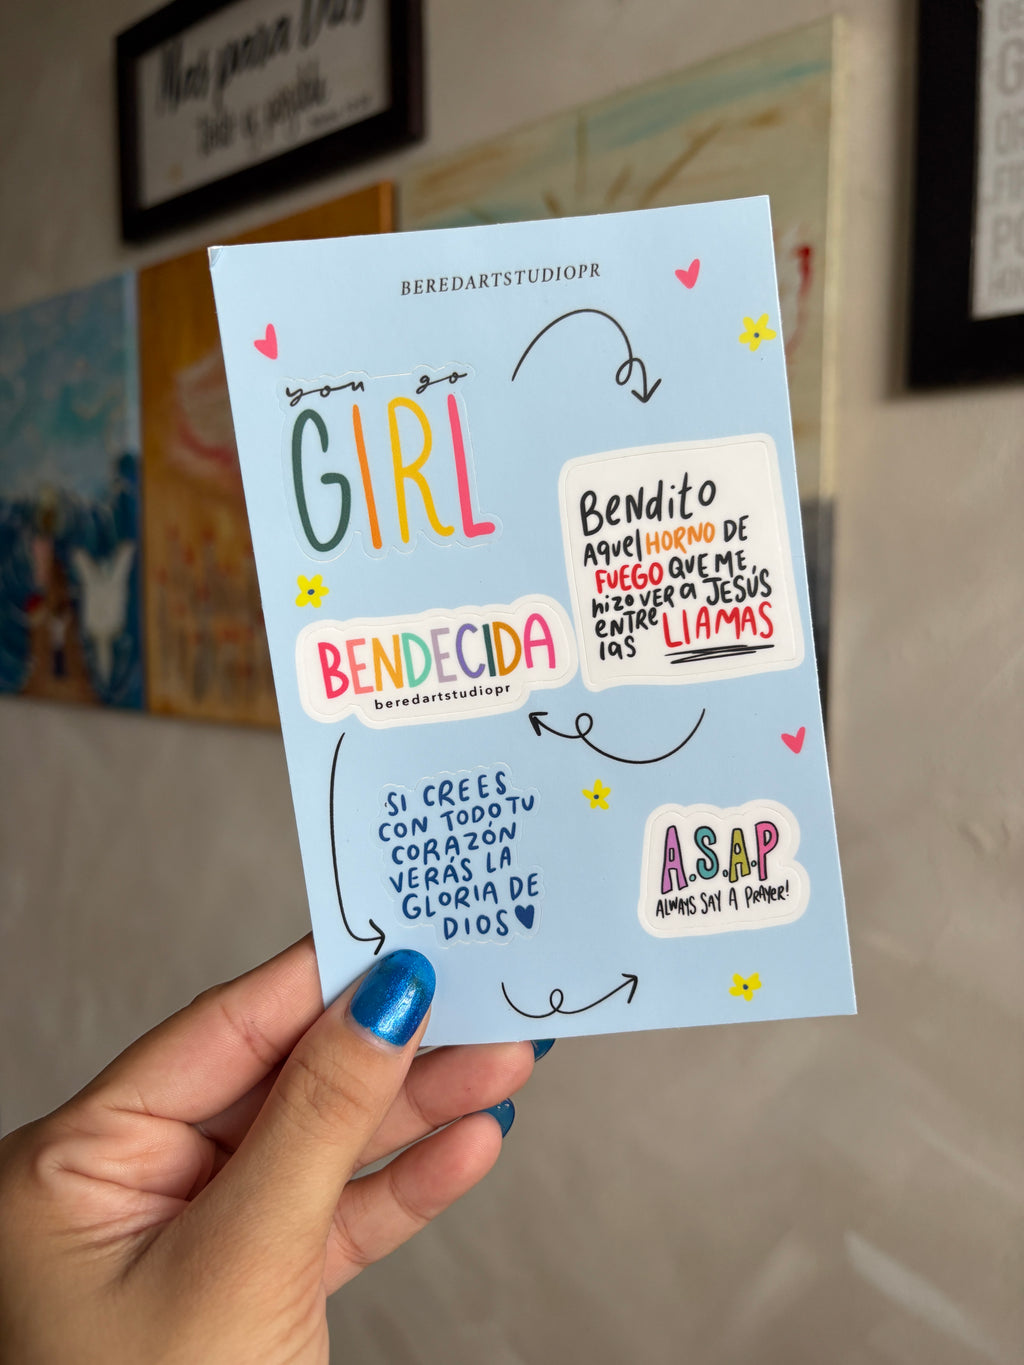 Mas para Dios
Todo es posible
BEREDARTSTUDIOPR
you go
GIRL
BENDITO
AQUEL HORNO DE
FUEGO QUE ME
hizo VER a JESÚS
ENTRE
las LLAMAS
BENDECIDA
beredartstudiopr
SI CREES
CON TODO TU
CORAZÓN
VERÁS LA
GLORIA DE
DIOS
A.S.A.P
ALWAYS SAY A PRAYER!